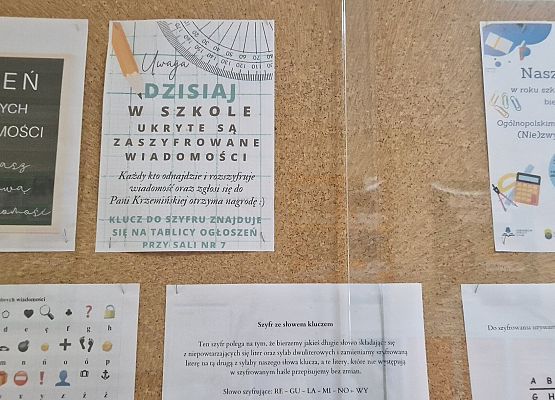 EŃ
YCH
OMOŚCI
Uwaga
DZISIAJ
W SZKOLE
UKRYTE SĄ
ZASZYFROWANE
WIADOMOŚCI
Każdy kto odnajdzie i rozszyfruje
wiadomość oraz zgłosi się do
Pani Krzemińskiej otrzyma nagrodę :)
KLUCZ DO SZYFRU ZNAJDUJE
SIĘ NA TABLICY OGŁOSZEŃ
PRZY SALI NR 7
Nasz
w roku szk
bie
Ogólnopolskim
(Nie)zwy
wiadomości
d e ę f g
m n ń o ó p
Szyfr ze słowem kluczem
Ten szyfr polega na tym, że bierzemy jakieś długie słowo składające się
z niepowtarzających się liter oraz sylab dwuliterowych i zamieniamy szyfrowaną
literę na tą drugą z sylaby naszego słowa klucza, a te litery, które nie występują
w szyfrowanym haśle przepisujemy bez zmian.
Słowo szyfrujące: RE – GU – LA – MI – NO – WY
Do szyfrowania używamy
A B
G H